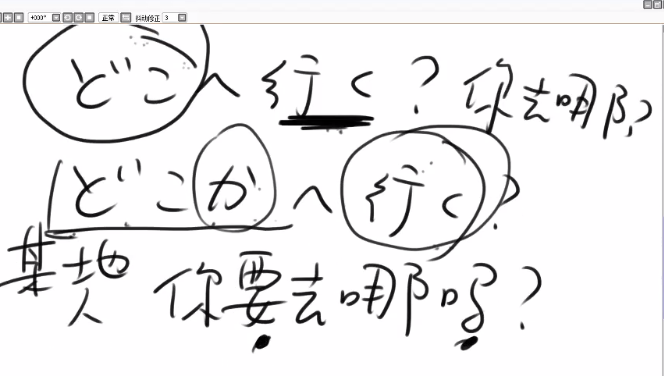 +000° 正常 抖动修正 3
どこへ行く？ 你去哪?
どこかへ行く？
某地 你要去哪吗？